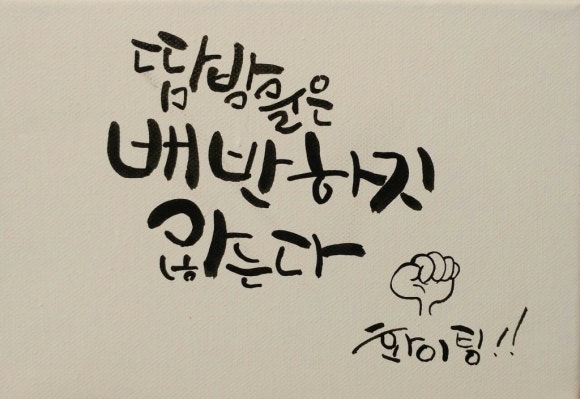 땀방울은
배반하지
않는다
화이팅!!